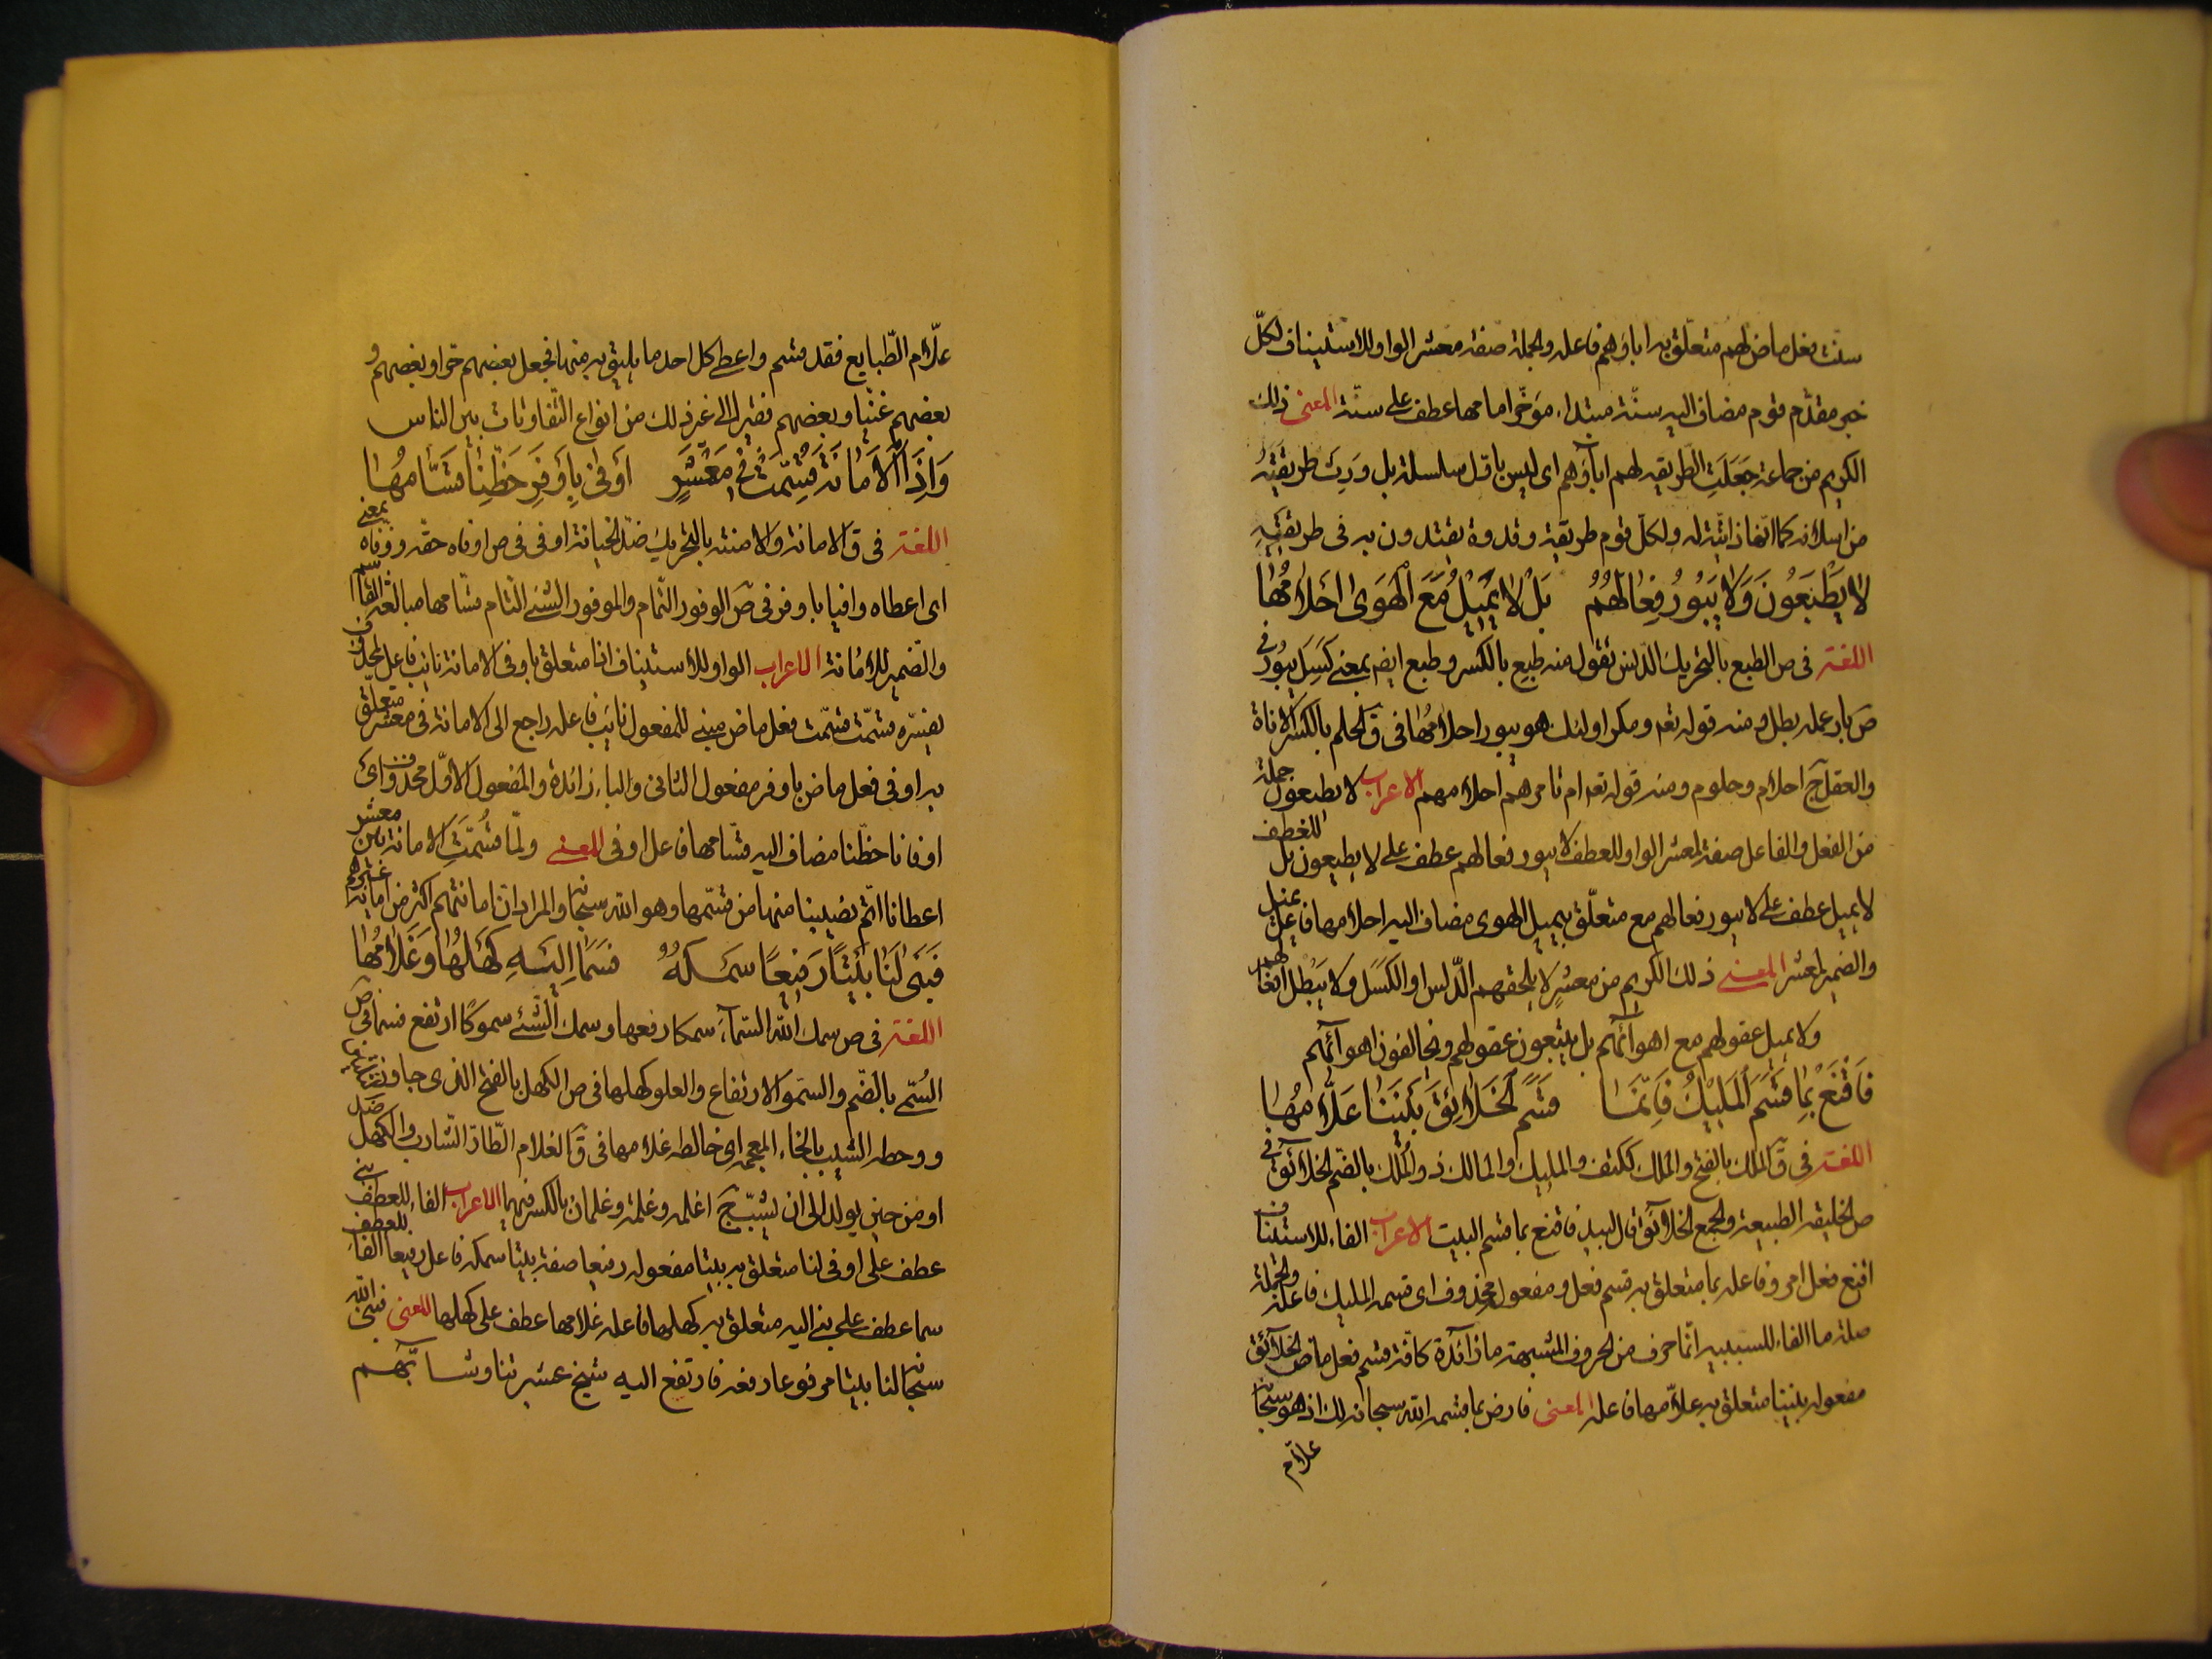 سنّت فعل ماض لهم متعلّق به اباؤهم فاعله والجملة صفة معشر الواو للاستيناف لكلّ
خبر مقدّم قوم مضاف اليه سنّة مبتداء مؤخّر امامها عطف على سنّة المعنى ذلك
الكريم من جماعة جَعَلَتِ الطّريقه لهم اباؤهم اى ليس باوّل سلسلة بل وَرِثَ طريقته
من اسلافه كما انّها ذاتيّة له ولكلّ قوم طريقة وقدوة يقتدون به فى طريقته
لا يَطْبَعُونَ وَلا يَبُورُ فِعالُهُمْ بَلْ لا يَمِيلُ مَعَ الْهَوَى اَحْلامُها
اللغة فى ص الطبع بالتحريك الدّنس تقول منه طبع بالكسر وطبع ايضا بمعنى كَسِلَ يبور فى
ص بار عمله بطل ومنه قوله تعه ومكر اولئك هو يبور احلامُها فى ق الحلم بالكسر الاناة
والعقل ج احلام وحلوم ومنه قوله تعه ام تامرهم احلامهم الاعراب لا يطبعون جملة
من الفعل والفاعل صفة لمعشر الواو للعطف لا يبور فعالهم عطف على لا يطبعون بل للعطف
لا يميل عطف على لا يبور فعالهم مع متعلّق بيميل الهوى مضاف اليه احلامها فاعل يميل
والضمير لمعشر المعنى ذلك الكريم من معشر لا يلحقهم الدّنس او الكَسَل ولا يَبْطل افعالهم
ولا يميل عقولهم مع اهوائهم بل يتبعون عقولهم ويخالفون اهوائهم
فَاقْنَعْ بِما قَسَمَ الْمَلِيْكُ فَاِنَّمَا قَسَمَ الْخَلائِقَ بَيْنَنا عَلّامُها
اللغة فى ق الملك بالفتح والملك ككتف والمليك والمالك ذو الملك بالضّم الخلائق فى
ص الخليقه الطبيعة والجمع الخلائق قال لبيد فاقنع بما قسم البيت الاعراب الفاء للاستيناف
اقنع فعل امر وفاعله بما متعلق به قسم فعل ومفعوله محذوف اى قسمه المليك فاعله والجملة
صلة ما الفاء للسببيه انّما حرف من الحروف المشبهة ما زائدة كافّة قسم فعل ماض الخلائق
مفعوله بيننا متعلق به علّامها فاعله المعنى فارض بما قسمه الله سبحانه لك اذ هو سبحانه
علّام
علّام الطّبايع فقد قسم واعطى كل احد ما يليق به منها فجعل بعضهم حرّا وبعضهم و
بعضهم غنيّا وبعضهم فقيرا الى غير ذلك من انواع التّفاوتات بين الناس
وَاِذَا الْاَمانَةُ قُسِّمَتْ فِى مَعْشَرٍ اَوْفٰى بِاَوْفَرِ حَظِّنا قَسّامُها
اللغة فى ق الامانة والامنة بالتحريك ضدّ الخيانة اوفى فى ص اوفاه حقّه ووفّاه بمعنى
اى اعطاه وافيا باوفر فى ص الوفور التّمام والموفور الشئ التّام قسّامها مبالغة القاسم
والضّمير للامانة الاعراب الواو للاستيناف اذا متعلق باوفى الامانة نايب فاعل لمحذوف
يفسّره قسّمت قسّمت فعل ماض مبنى للمفعول نايب فاعله راجع الى الامانة فى معشر متعلّق
به اوفى فعل ماض باوفر مفعول الثانى والباء زائدة والمفعول الاوّل محذوف اى
اوفانا حظّنا مضاف اليه قسّامها فاعل اوفى المعنى ولمّا قُسّمَت الامانة بين معشر
اعطانا اتمّ نصيبنا منها من قسّمها وهو الله سبحانه والمراد ان امانتهم اكثر من امانة غيرهم
فَبَنٰى لَنا بَيْتًا رَفِيْعًا سَمْكُهُ فَسَما اِلَيْهِ كَهْلُها وَغُلامُها
اللغة فى ص سمك الله السّمآء سمكا رفعها وسمك الشّئ سموكا ارتفع فسما فى ص
السّمو بالضّم والسّمو الارتفاع والعلو كهلها فى ص الكهل بالفتح الذى جاوز
ووخطه الشيب بالخاء المعجمه اى خالطه غلامها فى ق الغلام الطّارّ الشارب والكهل ضدّ
او من حين يولد الى ان يشبّ ج اغلمه وغلمة وغلمان بالكسر فيهما الاعراب الفاء للعطف بنى
عطف على اوفى لنا متعلق به بيتا مفعوله رفيعا صفة بيتا سمكه فاعل رفيعا الفاء للعطف
سما عطف على بنى اليه متعلق به كهلها فاعله غلامها عطف على كهلها المعنى فبنى الله
سبحانه لنا بيتا مرفوعا رفعه فارتفع اليه شيخ عشيرتنا وشابّهم